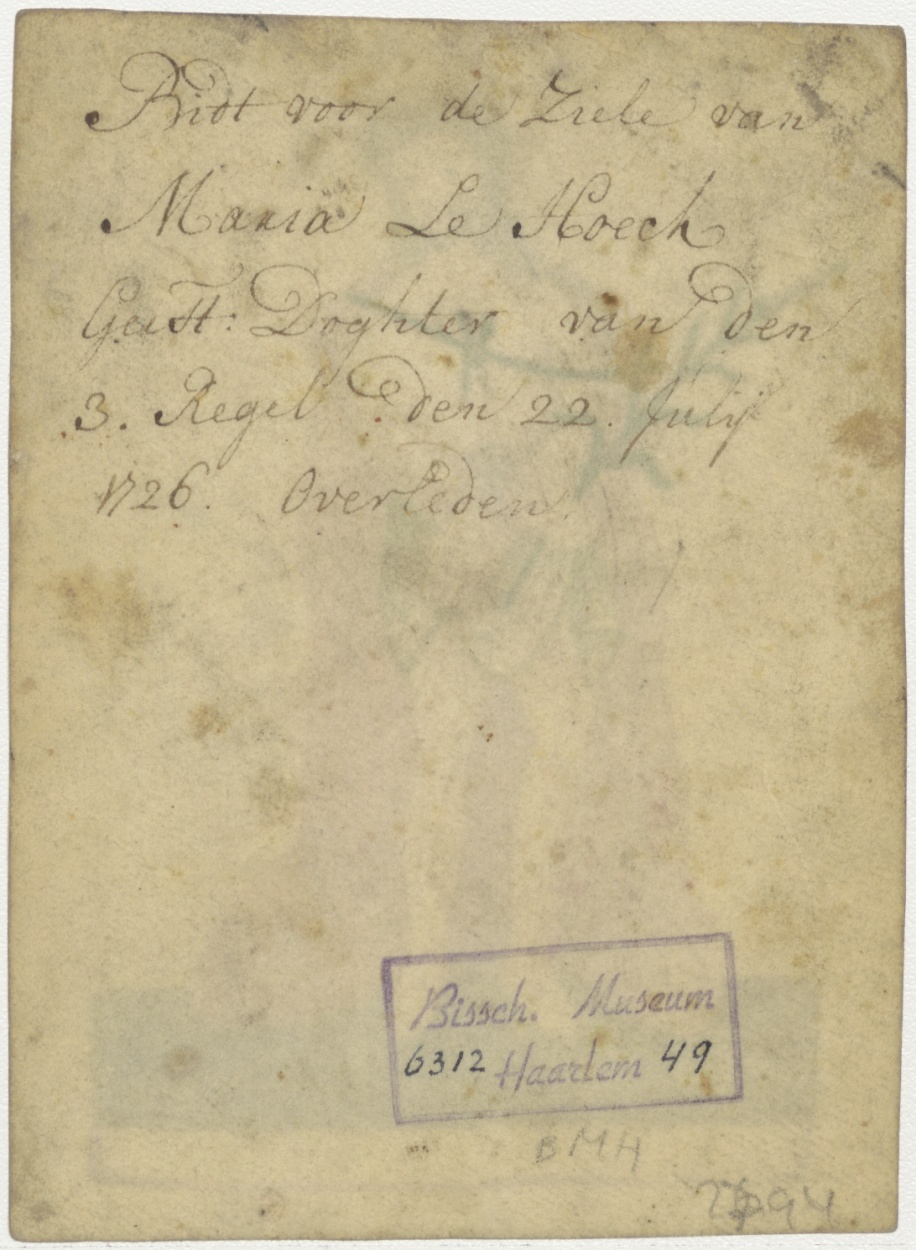 Bidt voor de Ziele van
Maria Le Hoeck
Geest: Doghter van den
3. Regel den 22. Julij
1726. Overleden.
Bissch. Museum
6312 Haarlem 49
BMH